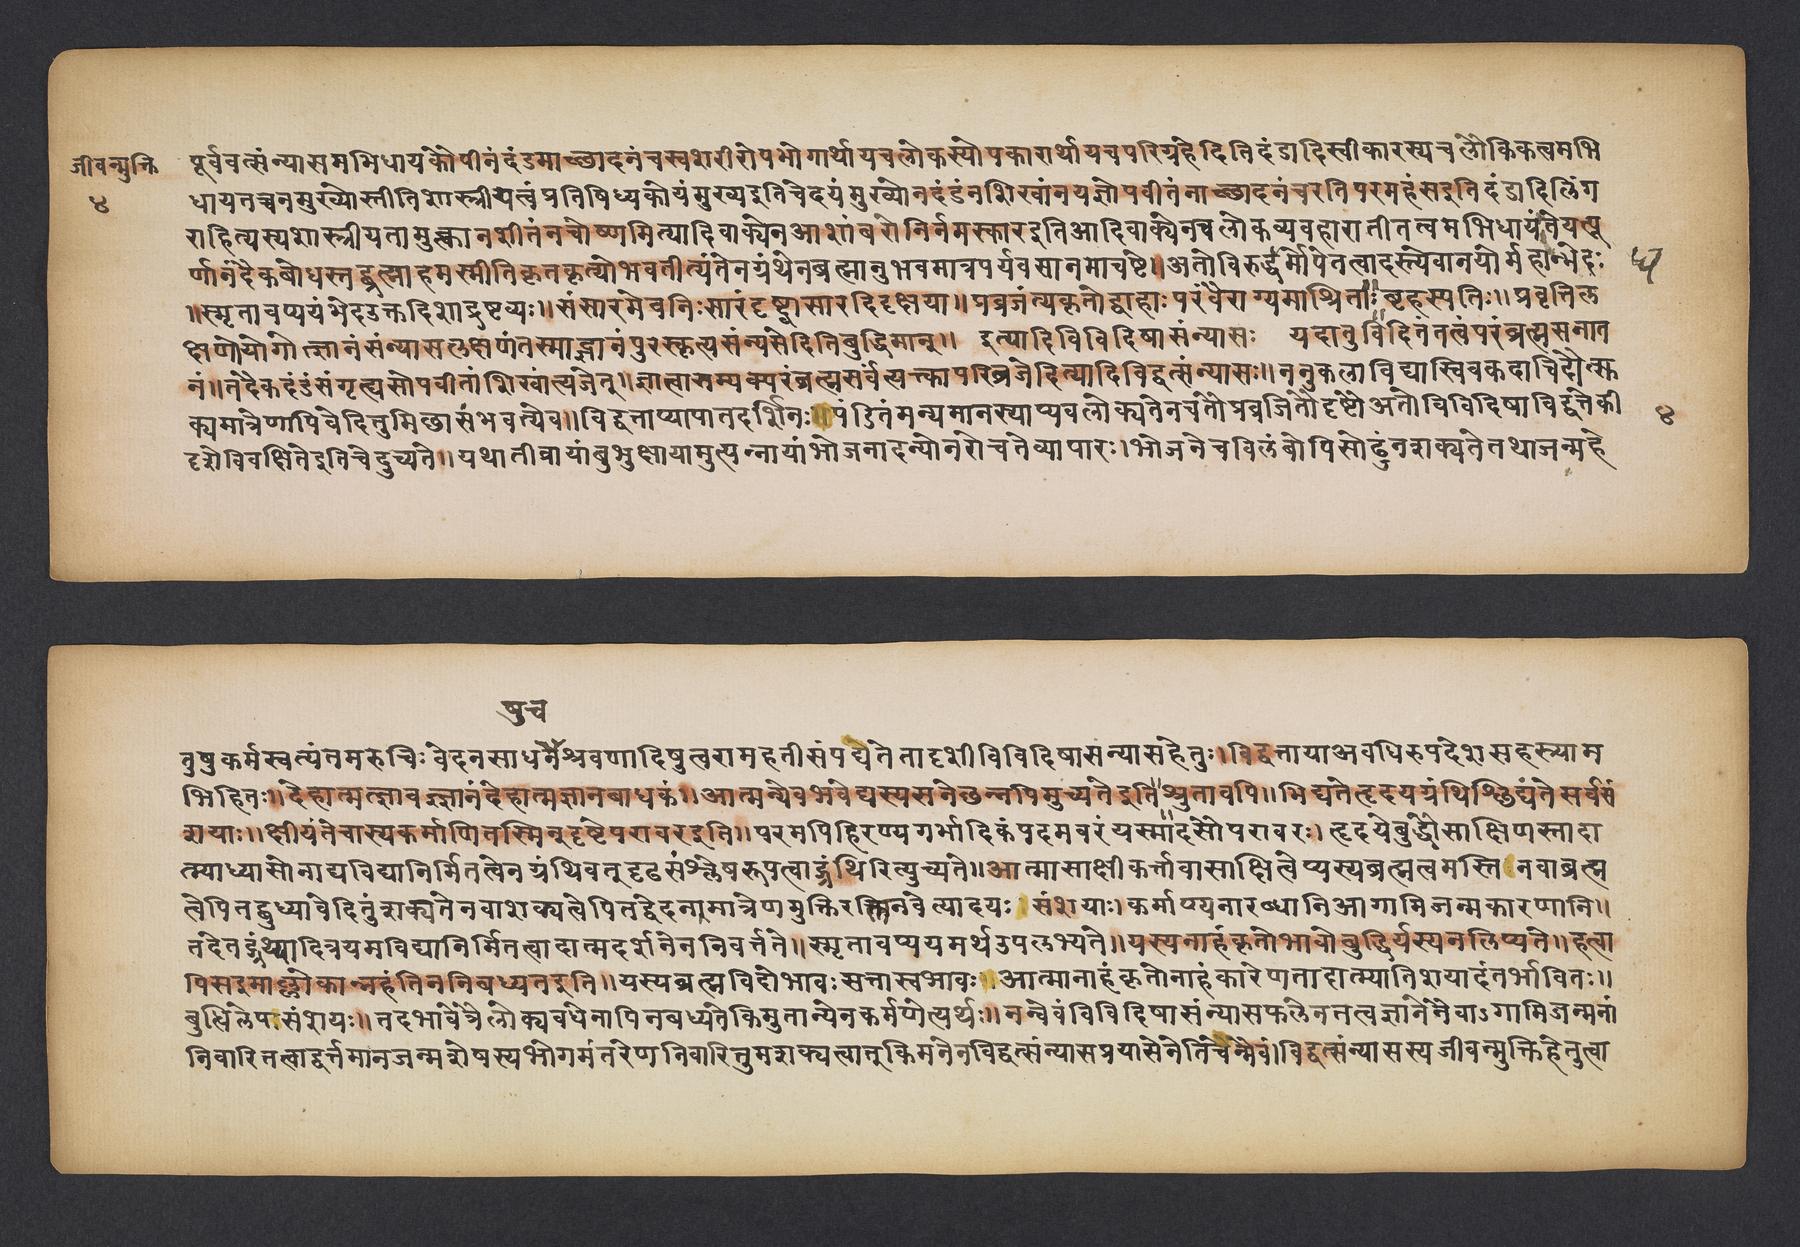 जीवन्मुक्ति
४
पूर्ववत्संन्यासमभिधाय कौपीनं दंडमाच्छादनं च स्वशरीरोपभोगार्थाय च लोकस्योपकारार्थाय च परिग्रहेदिति दंडादिस्वीकारस्य च लौकिकत्वमभि
धाय तच्च न मुख्योस्तीति शास्त्रीयत्वं प्रतिषिध्य कोयं मुख्य इति चेदयं मुख्यो न दंडं न शिखां न यज्ञोपवीतं नाच्छादनं चरति परमहंस इति दंडादिलिंग
राहित्यस्य शास्त्रीयतामुक्त्वा न शीतं न चोष्णमित्यादिवाक्येन आशांबरो निर्नमस्कार इति आदिवाक्येन च लोकव्यवहारातीतत्वमभिधायांते यत्पू
र्णानंदैकबोधस्तद्ब्रह्माहमस्मीति कृतकृत्यो भवतीत्यंतेन ग्रंथेन ब्रह्मानुभवमात्रपर्यवसानमाचष्टे॥ अतो विरुद्धधर्मोपेतत्वादस्त्येवानयोर्महान्भेदः
५
॥ स्मृतावप्ययं भेद उक्तदिशा द्रष्टव्यः॥ संसारमेव निःसारं दृष्ट्वा सारदिदृक्षया॥ प्रव्रजंत्यकृतोद्वाहाः परं वैराग्यमाश्रिताः॥ बृहस्पतिः॥ प्रवृत्तिल
क्षणो योगो ज्ञानं संन्यासलक्षणं तस्माद्ज्ञानं पुरस्कृत्य संन्यसेदिति बुद्धिमान्॥ इत्यादि विविदिषासंन्यासः यदा तु विदितं तत्वं परं ब्रह्म सनात
नं॥ तदैकदंडं संगृह्य सोपवीतां शिखां त्यजेत्॥ ज्ञात्वा सम्यक् परं ब्रह्म सर्वं त्यक्त्वा परिव्रजेदित्यादि विद्वत्संन्यासः॥ ननु कलाविद्यास्विव कदाचिदौत्सु
क्यमात्रेणापि वेदितुमिछा संभवत्येव॥ विद्वत्ताप्यापातदर्शिनः॥ पंडितं मन्यमानस्याप्यवलोक्यते न च तौ प्रव्रजितौ दृष्टौ अतो विविदिषाविद्वत्ते की
४
दृशे विवक्षिते इति चेदुच्यते॥ यथा तीव्रायां बुभुक्षायामुत्पन्नायां भोजनादन्यो न रोचते व्यापारः। भोजने च विलंबोपि सोढुं न शक्यते तथा जन्महे
षु च
तुषु कर्मस्वत्यंतमरुचिः वेदनसाधने श्रवणादिषु त्वरा महती संपद्यते तादृशी विविदिषा सन्यासहेतुः। विद्वत्ताया अवधिरुपदेशसहस्र्याम
भिहितः॥ देहात्मज्ञावज्ज्ञानं देहात्मज्ञानबाधकं॥ आत्मन्येव भवेद्यस्य स नेछन्नपि मुच्यते इति॥ श्रुतावपि॥ भिद्यते हृदयग्रंथिश्छिद्यंते सर्वसं
शयाः॥ क्षीयंते चास्य कर्माणि तस्मिन्दृष्टे परावर इति॥ परमपि हिरण्यगर्भादिकं पदमवरं यस्मादसौ परावरः। हृदये बुद्धौ साक्षिणस्तादा
त्म्याध्यासोनाद्यविद्यानिर्मितत्वेन ग्रंथिवत् दृढसंश्लेषरूपत्वाद्ग्रंथिरित्युच्यते॥ आत्मा साक्षी कर्त्ता वा साक्षित्वेप्यस्य ब्रह्मत्वमस्ति न वा ब्रह्म
त्वेपि तद्बुध्या वेदितुं शक्यते न वा शक्यत्वेपि तद्वेदनामात्रेण मुक्तिरस्ति न वेत्यादयः। संशयाः। कर्माण्यनारब्धानि आगामिजन्मकारणानि॥
तदेतद्ग्रंथ्यादित्रयमविद्यानिर्मितत्वादात्मदर्शनेन निवर्त्तते॥ स्मृतावप्ययमर्थ उपलभ्यते॥ यस्य नाहंकृतो भावो बुद्धिर्यस्य न लिप्यते॥ हत्वा
पि स इमाल्लोकान्न हंति न निबध्यत इति॥ यस्य ब्रह्मविदो भावः सत्ता स्वभावः॥ आत्मा नाहंकृतो नाहंकारेण तादात्म्यातिशयादंतर्भावितः॥
बुद्धिलेपः संशयः॥ तदभावे त्रैलोक्यवधेनापि न बध्यते किमुतान्येन कर्मणेत्यर्थः॥ नन्वेवं विविदिषासंन्यासफलेन तत्वज्ञानेनैवाऽगामिजन्मनां
निवारितत्वाद्वर्त्तमानजन्मशेषस्य भोगमंतरेण निवारितुमशक्यत्वात् किमनेन विद्वत्संन्यासप्रयासेनेति चेन्मैवं। विद्वत्संन्यासस्य जीवन्मुक्तिहेतुत्वा